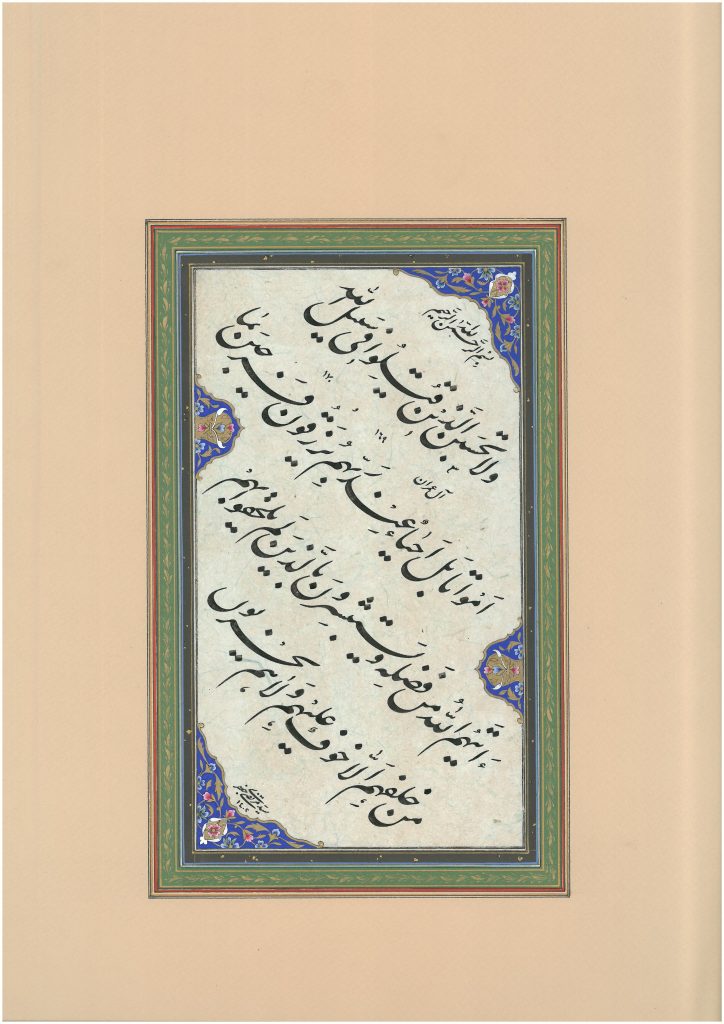 بسم الله الرحمن الرحیم
ولا تحسبن الذین قتلوا فی سبیل الله
۳
آل عمران
۱۶۹
امواتا بل احیاء عند ربهم یرزقون فرحین بما
۱۷۰
ءاتیهم الله من فضله و یستبشرون بالذین لم یلحقوا بهم
من خلفهم الا خوف علیهم ولا هم یحزنون
۱۴۰۲